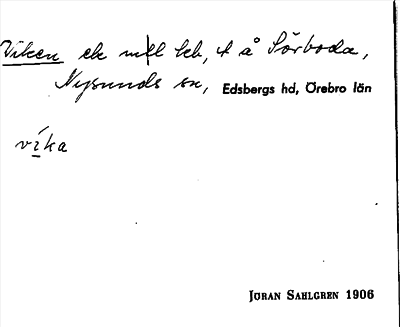 Viken ek mell lek, ut å Sörboda,
Nysunds sn, Edsbergs hd, Örebro län
vika
JÖRAN SAHLGREN 1906